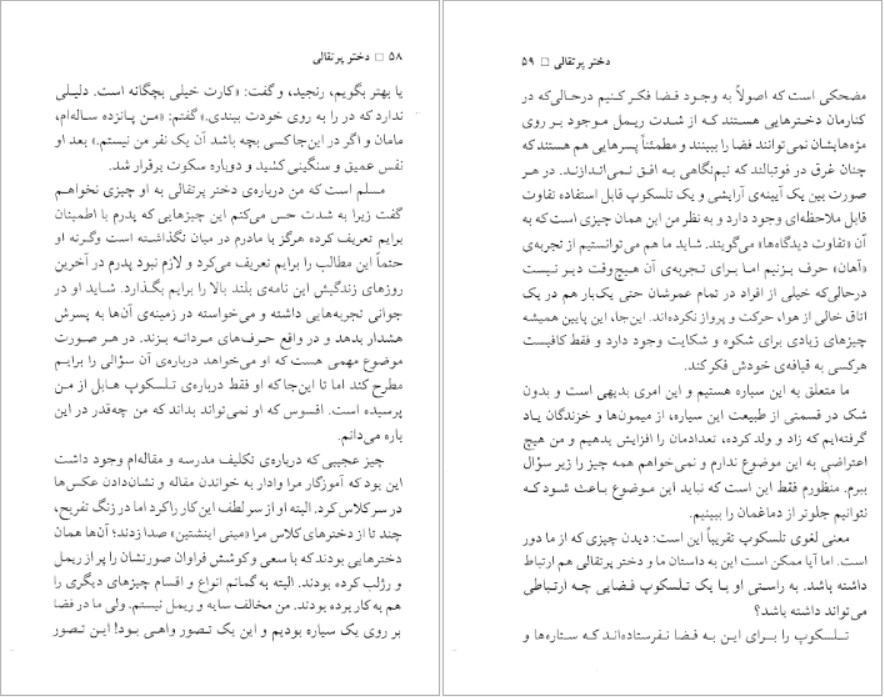 ۵۸ □ دختر پرتقالی
یا بهتر بگویم، رنجید، و گفت: «کارت خیلی بچگانه است. دلیلی
ندارد که در را به روی خودت ببندی.» گفتم: «من پانزده ساله‌ام،
مامان و اگر در این‌جا کسی بچه باشد آن یک نفر من نیستم.» بعد او
نفس عمیق و سنگینی کشید و دوباره سکوت برقرار شد.
مسلم است که من درباره‌ی دختر پرتقالی به او چیزی نخواهم
گفت زیرا به شدت حس می‌کنم این چیزهایی که پدرم با اطمینان
برایم تعریف کرده هرگز با مادرم در میان نگذاشته است وگرنه او
حتماً این مطالب را برایم تعریف می‌کرد و لازم نبود پدرم در آخرین
روزهای زندگیش این نامه‌ی بلند بالا را برایم بگذارد. شاید او در
جوانی تجربه‌هایی داشته و می‌خواسته در زمینه‌ی آن‌ها به پسرش
هشدار بدهد و در واقع حرف‌های مردانه بزند. در هر صورت
موضوع مهمی هست که او می‌خواهد درباره‌ی آن سؤالی را برایم
مطرح کند اما تا این‌جا که او فقط درباره‌ی تلسکوپ هابل از من
پرسیده است. افسوس که او نمی‌تواند بداند که من چه‌قدر در این
باره می‌دانم.
چیز عجیبی که درباره‌ی تکلیف مدرسه و مقاله‌ام وجود داشت
این بود که آموزگار مرا وادار به خواندن مقاله و نشان‌دادن عکس‌ها
در سر کلاس کرد. البته او از سر لطف این کار را کرد اما در زنگ تفریح،
چند تا از دخترهای کلاس مرا «مینی اینشتین» صدا زدند؛ آن‌ها همان
دخترهایی بودند که با سعی و کوشش فراوان صورتشان را پر از ریمل
و رژلب کرده بودند. البته به گمانم انواع و اقسام چیزهای دیگری را
هم به کار برده بودند. من مخالف سایه و ریمل نیستم. ولی ما در فضا
بر روی یک سیاره بودیم و این یک تصور واهی بود! این تصور
دختر پرتقالی □ ۵۹
مضحکی است که اصولاً به وجود فضا فکر کنیم درحالی‌که در
کنارمان دخترهایی هستند که از شدت ریمل موجود بر روی
مژه‌هایشان نمی‌توانند فضا را ببینند و مطمئناً پسرهایی هم هستند که
چنان غرق در فوتبالند که نیم‌نگاهی به افق نمی‌اندازند. در هر
صورت بین یک آیینه‌ی آرایشی و یک تلسکوپ قابل استفاده تفاوت
قابل ملاحظه‌ای وجود دارد و به نظر من این همان چیزی است که به
آن «تفاوت دیدگاه‌ها» می‌گویند. شاید ما هم می‌توانستیم از تجربه‌ی
«آهان» حرف بزنیم اما برای تجربه‌ی آن هیچ‌وقت دیر نیست
درحالی‌که خیلی از افراد در تمام عمرشان حتی یک‌بار هم در یک
اتاق خالی از هوا، حرکت و پرواز نکرده‌اند. این‌جا، این پایین همیشه
چیزهای زیادی برای شکوه و شکایت وجود دارد و فقط کافیست
هرکسی به قیافه‌ی خودش فکر کند.
ما متعلق به این سیاره هستیم و این امری بدیهی است و بدون
شک در قسمتی از طبیعت این سیاره، از میمون‌ها و خزندگان یاد
گرفته‌ایم که زاد و ولد کرده، تعدادمان را افزایش بدهیم و من هیچ
اعتراضی به این موضوع ندارم و نمی‌خواهم همه چیز را زیر سؤال
ببرم. منظورم فقط این است که نباید این موضوع باعث شود که
نتوانیم جلوتر از دماغمان را ببینیم.
معنی لغوی تلسکوپ تقریباً این است: دیدن چیزی که از ما دور
است. اما آیا ممکن است این به داستان ما و دختر پرتقالی هم ارتباط
داشته باشد. به راستی او با یک تلسکوپ فضایی چه ارتباطی
می‌تواند داشته باشد؟
تلسکوپ را برای این به فضا نفرستاده‌اند که ستاره‌ها و